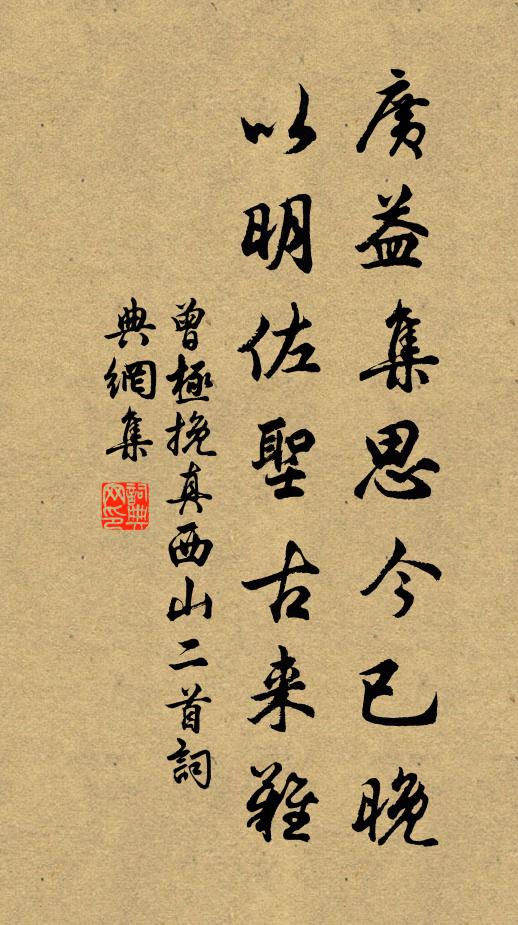 廣益集思今已晚
以明佐聖古来難
曾極挽真西山二首詞
典網集
詞典
网印